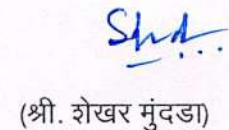 (श्री. शेखर मुंदडा)